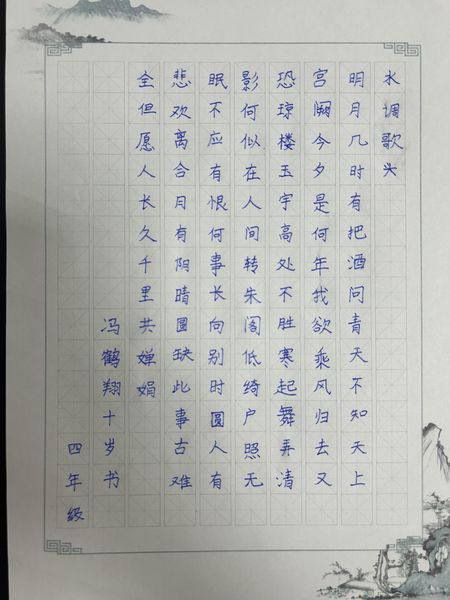 水调歌头
明月几时有把酒问青天不知天上
宫阙今夕是何年我欲乘风归去又
恐琼楼玉宇高处不胜寒起舞弄清
影何似在人间转朱阁低绮户照无
眠不应有恨何事长向别时圆人有
悲欢离合月有阴晴圆缺此事古难
全但愿人长久千里共婵娟
冯鹤翔十岁书
四年级